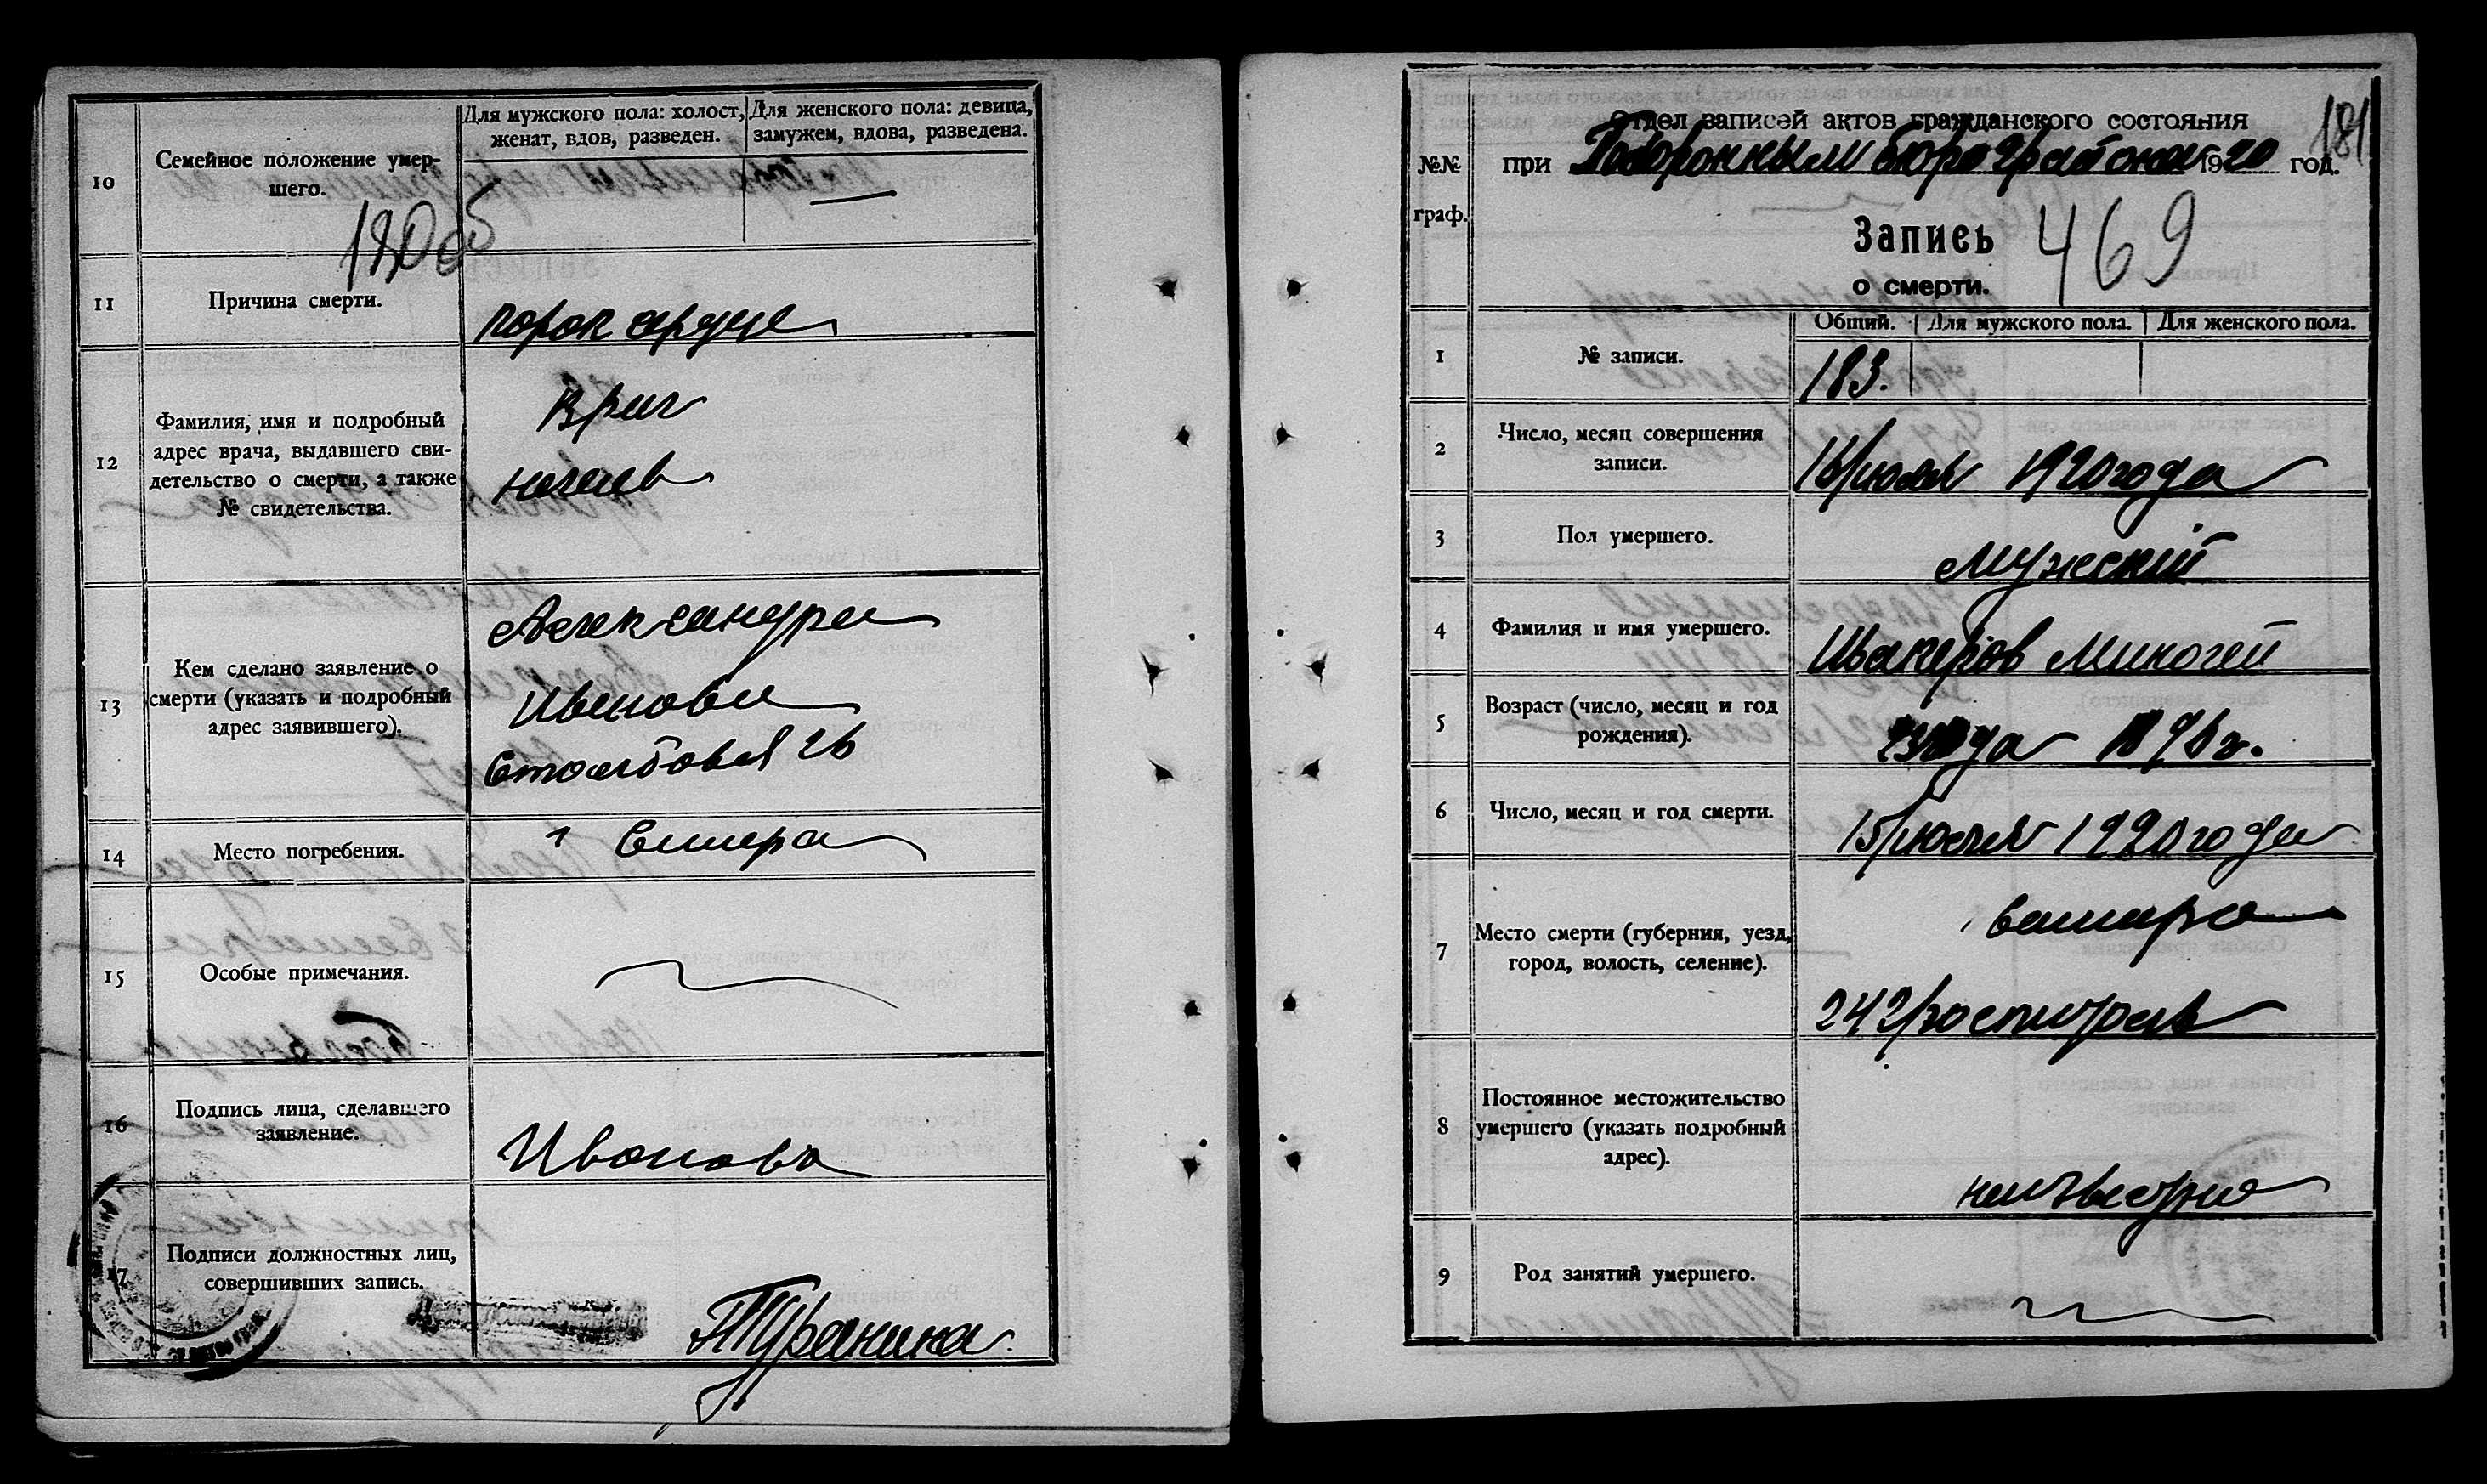 10
Семейное положение умер-
шего.
Для мужского пола: холост,
женат, вдов, разведен.
Для женского пола: девица,
замужем, вдова, разведена.
—
180 об
11
Причина смерти.
порок сердце
12
Фамилия, имя и подробный
адрес врача, выдавшего сви-
детельство о смерти, а также
№ свидетельства.
Врач
13
Кем сделано заявление о
смерти (указать и подробный
адрес заявившего).
Александра
Иванова
26
14
Место погребения.
г Самара
15
Особые примечания.
16
Подпись лица, сделавшего
заявление.
Иванова
17
Подписи должностных лиц,
совершивших запись.
181
№№
граф.
Отдел записей актов гражданского состояния
при Похоронным бюро 1920 год.
Запись
о смерти.
469
1
№ записи.
Общий.
Для мужского пола.
Для женского пола.
183.
2
Число, месяц совершения
записи.
16/июля 1920 года
3
Пол умершего.
Мужской
4
Фамилия и имя умершего.
5
Возраст (число, месяц и год
рождения).
6
Число, месяц и год смерти.
15/июля 1920 года
7
Место смерти (губерния, уезд,
город, волость, селение).
Самара
242/госпиталь
8
Постоянное местожительство
умершего (указать подробный
адрес).
неизвестно
9
Род занятий умершего.